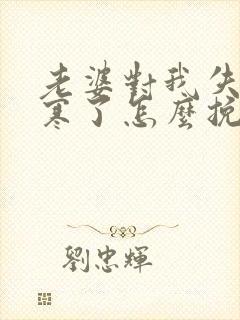 老婆對我失
寒了怎麼挽
劉忠輝